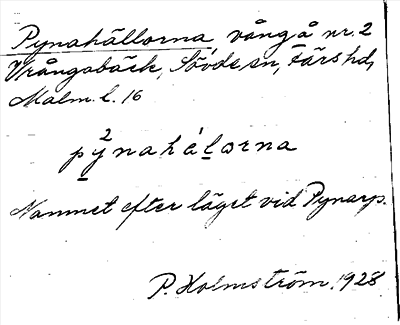 Pynahällorna, vång å nr. 2
Vrångabäck, Sövde sn, Färs hd,
Malm. l. 16
pÿ²nahálorna
Namnet efter läget vid Pynarp.
P. Holmström. 1928